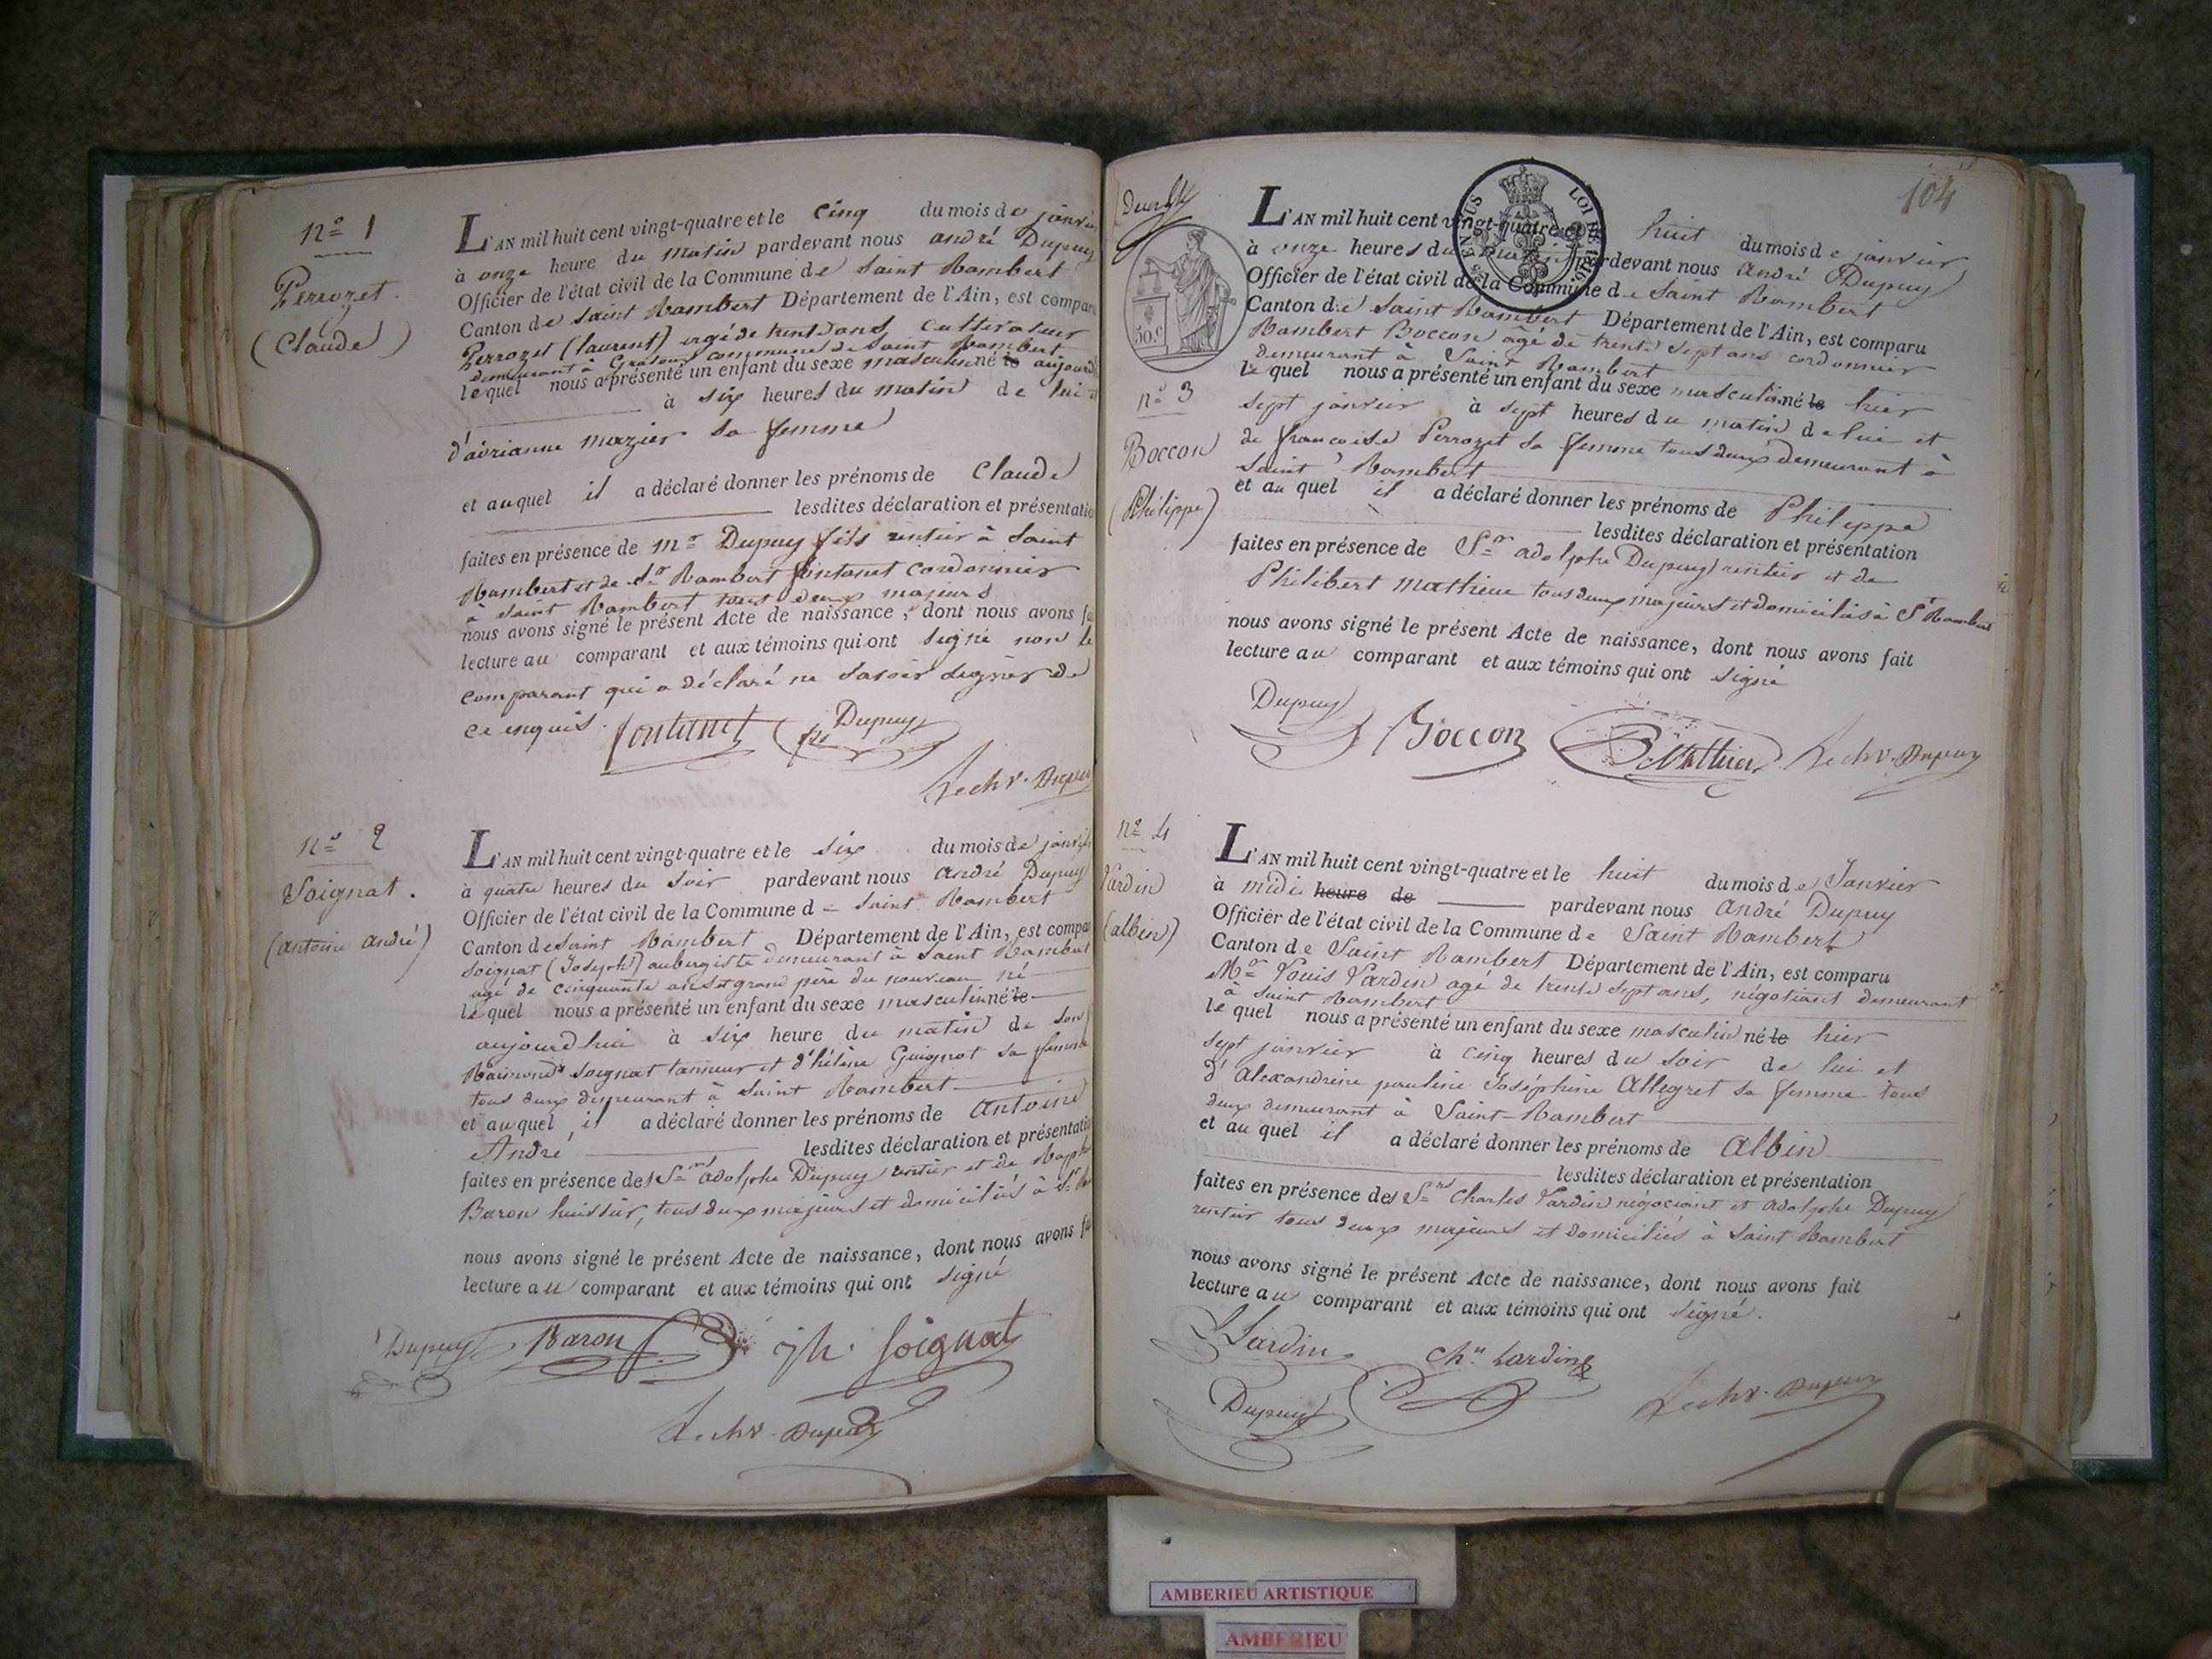 nº 1
Perrozet.
(Claude)
L'AN mil huit cent vingt-quatre et le cinq du mois de janvier
à onze heure du matin pardevant nous andré Dupuy
Officier de l'état civil de la Commune de Saint Rambert
Canton de Saint Rambert Département de l'Ain, est comparu
Perrozet (laurent) agé de trente ans, cultivateur
demeurant à commune de Saint Rambert
lequel nous a présenté un enfant du sexe masculin né le aujourd
à six heures du matin de lui et
d'adrianne mazier sa femme
et auquel il a déclaré donner les prénoms de Claude
lesdites déclaration et présentation
faites en présence de mr Dupuy fils rentier à Saint
Rambert et de Sr Rambert fontanet cordonnier
à Saint Rambert tous deux majeurs
nous avons signé le présent Acte de naissance, dont nous avons fait
lecture au comparant et aux témoins qui ont signé non le
comparant qui a déclaré ne savoir signer de
ce enquis.
fontanet Dupuy fils
Le chr. Dupuy
nº 2
Soignat.
(antoine andré)
L'AN mil huit cent vingt-quatre et le six du mois de janvier
à quatre heures du Soir pardevant nous andré Dupuy
Officier de l'état civil de la Commune d = Saint Rambert
Canton de Saint Rambert Département de l'Ain, est comparu
Soignat (Joseph) aubergiste demeurant à Saint Rambert
agé de cinquante ans et grand père du nouveau né
lequel nous a présenté un enfant du sexe masculin né le
aujourdhui à six heure du matin de son
Raimond Soignat tanneur et d'hélène Guignot sa femme
tous deux demeurant à Saint Rambert
et auquel il a déclaré donner les prénoms de Antoine
André lesdites déclaration et présentation
faites en présence des Srs adolphe Dupuy rentier et de
Baron huissier, tous deux majeurs et domiciliés à St
nous avons signé le présent Acte de naissance, dont nous avons fait
lecture au comparant et aux témoins qui ont signé
Dupuy Baron jh. Soignat
Le chr. Dupuy
104
50 c
LOI DE
EN SUS
L'AN mil huit cent vingt-quatre et le huit du mois de janvier
à onze heures du matin pardevant nous André Dupuy
Officier de l'état civil de la Commune de Saint Rambert
Canton de Saint Rambert Département de l'Ain, est comparu
Rambert Boccon âgé de trente sept ans cordonnier
demeurant à Saint Rambert
nº 3
Boccon
(Philippe)
lequel nous a présenté un enfant du sexe masculin né le hier
sept janvier à sept heures du matin de lui et
de francoise Perrozet sa femme tous deux demeurant à
Saint Rambert
et au quel il a déclaré donner les prénoms de Philippe
lesdites déclaration et présentation
faites en présence de Sr adolphe Dupuy rentier et de
Philibert mathieu tous deux majeurs et domiciliés à St Rambert
nous avons signé le présent Acte de naissance, dont nous avons fait
lecture au comparant et aux témoins qui ont signé
Dupuy Boccon Mathieu Le chr. Dupuy
nº 4
Lardin
(albin)
L'AN mil huit cent vingt-quatre et le huit du mois de Janvier
à midi heure de pardevant nous André Dupuy
Officier de l'état civil de la Commune de Saint Rambert
Canton de Saint Rambert Département de l'Ain, est comparu
Mr Louis Lardin agé de trente sept ans, négotiant demeurant
à Saint Rambert
lequel nous a présenté un enfant du sexe masculin né le hier
sept janvier à cinq heures du soir de lui et
d'Alexandrine pauline Joséphine Allegret sa femme tous
deux demeurant à Saint-Rambert
et au quel il a déclaré donner les prénoms de Albin
lesdites déclaration et présentation
faites en présence des Srs Charles Lardin négociant et adolphe Dupuy
rentier tous deux majeurs et domiciliés à Saint Rambert
nous avons signé le présent Acte de naissance, dont nous avons fait
lecture au comparant et aux témoins qui ont signé.
L Lardin Chs Lardin
Dupuy Le chr. Dupuy
AMBERIEU ARTISTIQUE
AMBERIEU